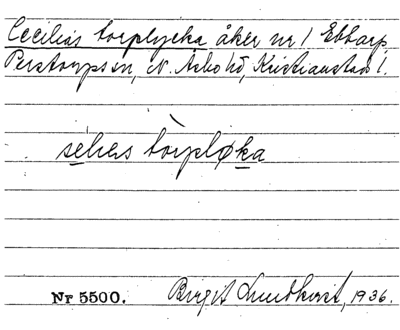 Cecilias torplycka åker nr 1 Ettarp
Perstorps sn, N. Åsbo hd, Kristianstads l.
sèlias tòrpløka
Nr 5500. Birgit Lundkvist, 1936.